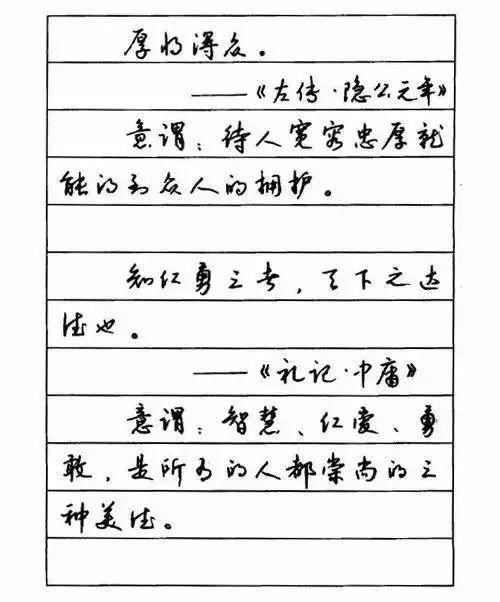 厚将得众。
——《左传·隐公元年》
意谓：待人宽容忠厚就
能得到众人的拥护。
知仁勇三者，天下之达
德也。
——《礼记·中庸》
意谓：智慧、仁爱、勇
敢，是所有的人都崇尚的三
种美德。